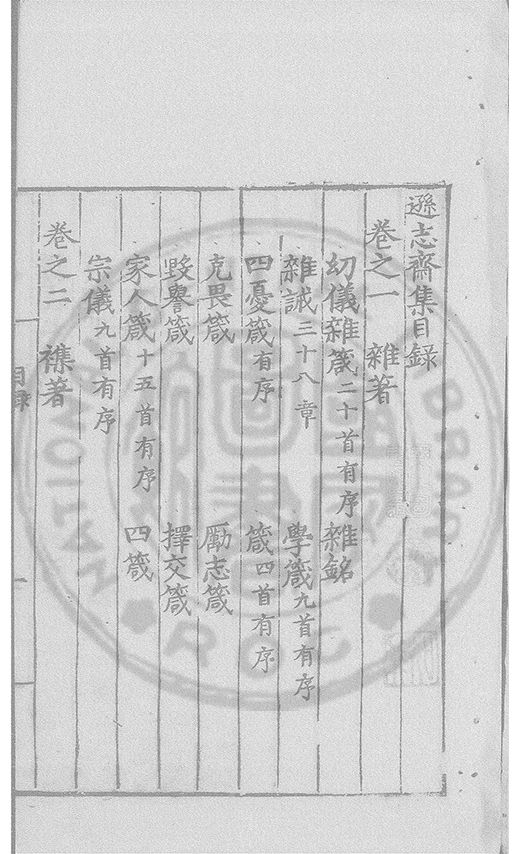 遜志齋集目録
卷之一 雜著
幼儀雜箴二十首有序 雜銘
雜誡三十八章 學箴九首有序
四憂箴有序 箴四首有序
克畏箴 勵志箴
毀譽箴 擇交箴
家人箴十五首有序 四箴
宗儀九首有序
卷之二 襍著
目録